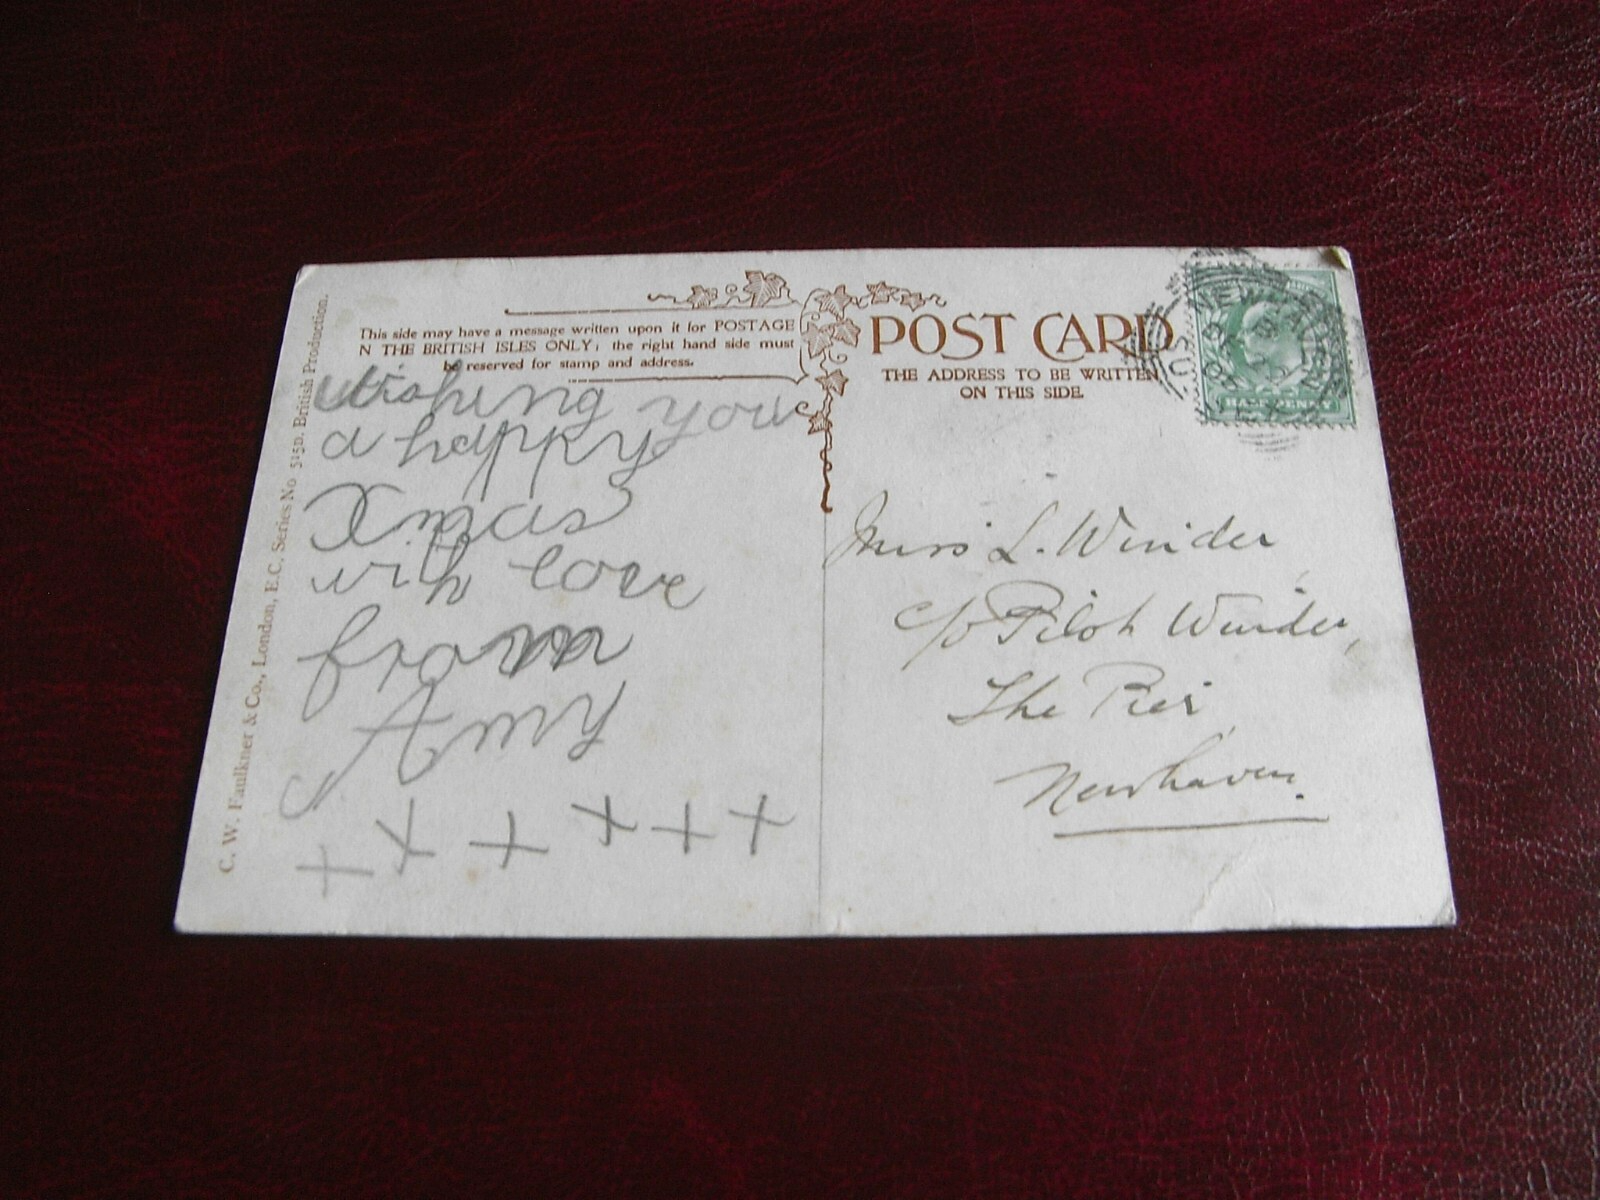 This side may have a message written upon it for POSTAGE
N THE BRITISH ISLES ONLY; the right hand side must
be reserved for stamp and address.
Wishing you
a happy
Xmas
with love
from
Amy
+ + + + + +
C. W. Faulkner & Co., London, E.C. Series No 515D. British Production.
POST CARD
THE ADDRESS TO BE WRITTEN
ON THIS SIDE.
HALFPENNY
Miss L. Winder
c/o Pilot Winder,
The Pier
Newhaven.